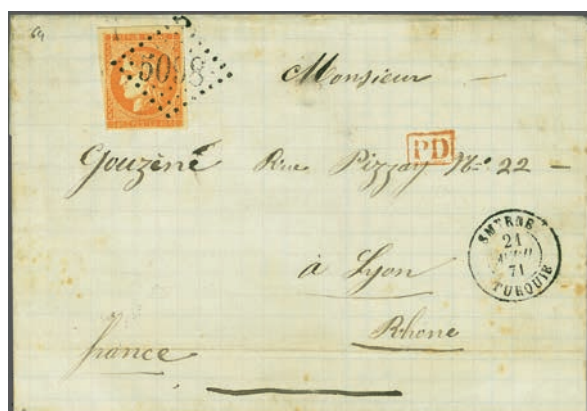 64
5098
Monsieur —
Gouzéné Rue Pizzay No 22 —
PD
SMYRNE
21
AVRIL
71
TURQUIE
à Lyon
Rhone
france